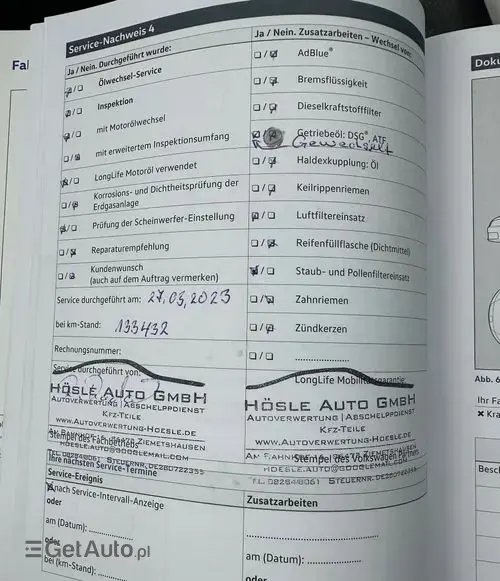 Service-Nachweis 4
Ja / Nein. Durchgeführt wurde:
Ölwechsel-Service
Inspektion
mit Motorölwechsel
mit erweitertem Inspektionsumfang
LongLife Motoröl verwendet
Korrosions- und Dichtheitsprüfung der
Erdgasanlage
Prüfung der Scheinwerfer-Einstellung
Reparaturempfehlung
Kundenwunsch
(auch auf dem Auftrag vermerken)
Service durchgeführt am: 27.03.2023
bei km-Stand: 133432
Rechnungsnummer:
Service durchgeführt von:
HÖSLE AUTO GMBH
AUTOVERWERTUNG | ABSCHLEPPDIENST
KFZ-TEILE
WWW.AUTOVERWERTUNG-HOESLE.DE
ZIEMETSHAUSEN
Stempel des Fachbetriebs
HOESLE.AUTO@GOOGLEMAIL.COM
STEUERNR. DE280722355
Ihre nächsten Service-Termine
Service-Ereignis
nach Service-Intervall-Anzeige
oder
am (Datum):
oder
bei (km-Stand):
Ja / Nein. Zusatzarbeiten – Wechsel von:
AdBlue®
Bremsflüssigkeit
Dieselkraftstofffilter
Getriebeöl: DSG®, ATF
Gewechselt
Haldexkupplung: Öl
Keilrippenriemen
Luftfiltereinsatz
Reifenfüllflasche (Dichtmittel)
Staub- und Pollenfiltereinsatz
Zahnriemen
Zündkerzen
LongLife Mobilitätsgarantie
HÖSLE AUTO GMBH
AUTOVERWERTUNG | ABSCHLEPPDIENST
KFZ-TEILE
WWW.AUTOVERWERTUNG-HOESLE.DE
ZIEMETSHAUSEN
Stempel des Volkswagen Partners
HOESLE.AUTO@GOOGLEMAIL.COM
STEUERNR. DE280722355
Zusatzarbeiten
am (Datum):
oder
Doku
Abb. 6
Ihr Fa
Besch
GetAuto.pl